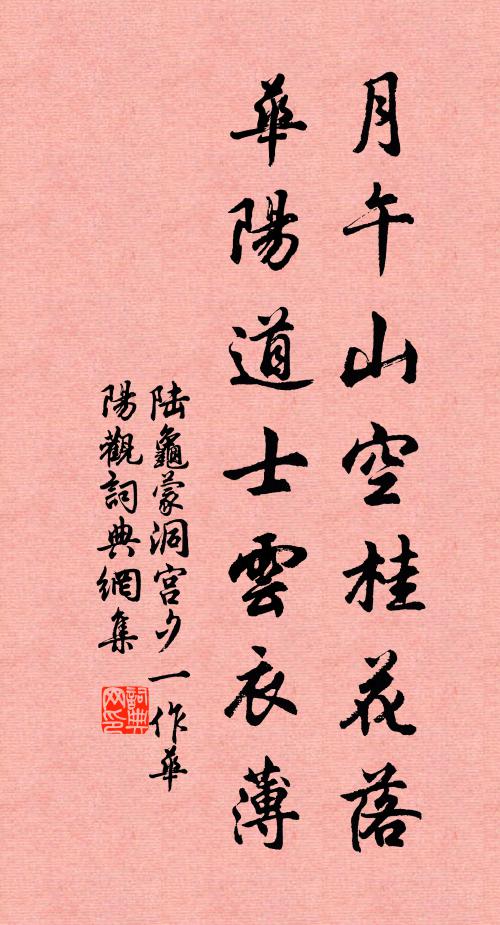 月午山空桂花落
華陽道士雲衣薄
陆龜蒙洞宮夕一作華
陽觀詞典網集
詞典网印